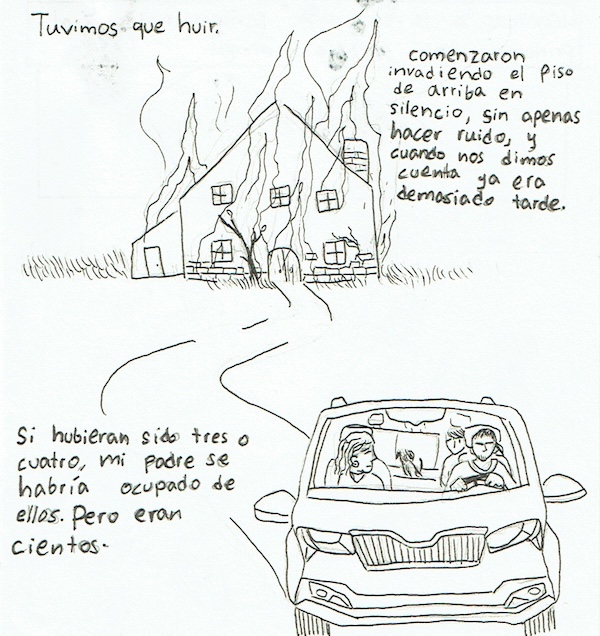 Tuvimos que huir.
comenzaron
invadiendo el piso
de arriba en
silencio, sin apenas
hacer ruido, y
cuando nos dimos
cuenta ya era
demasiado tarde.
Si hubieran sido tres o
cuatro, mi padre se
habría ocupado de
ellos. Pero eran
cientos.